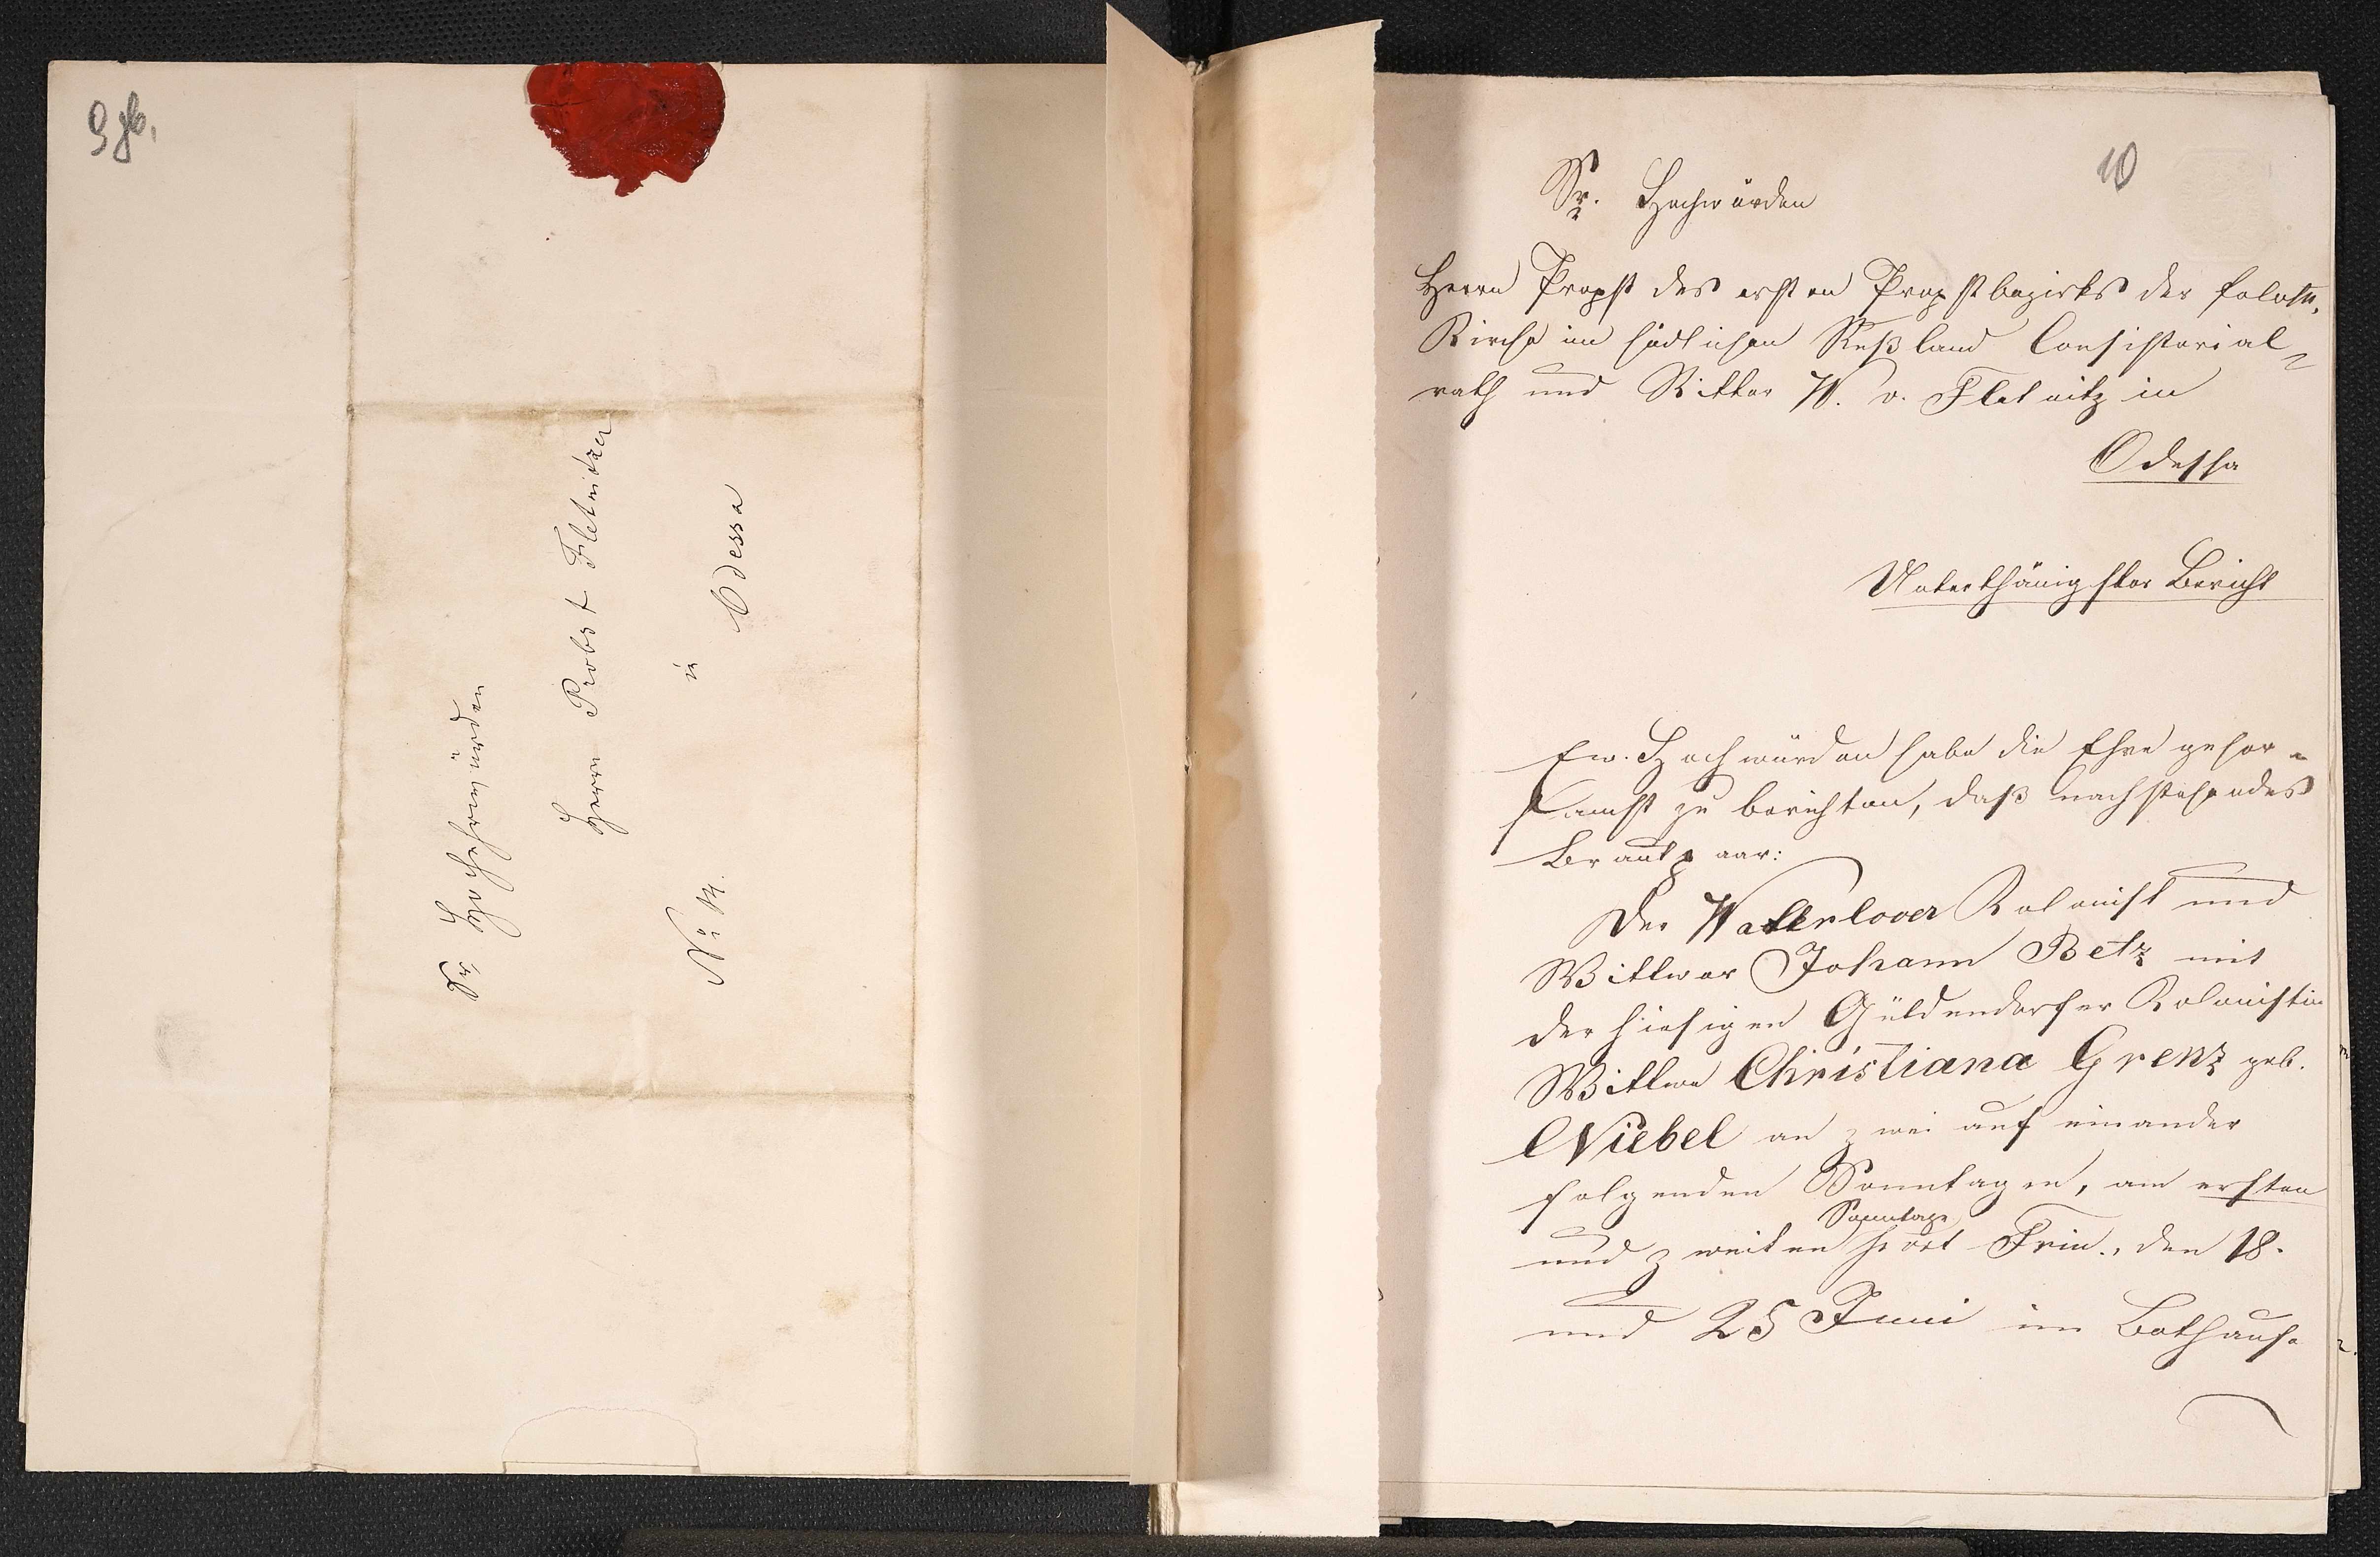 9 об.
Sr Hochehrwürden
Herrn Probst Fletnitzer
in
Odessa
N: 14.
10
Sr. Hochwürden
Herrn Propst des ersten Propstbezirks der ev. luth.
Kirche im südlichen Rußland Consistorial=
rath und Ritter W. v. Fletnitz in
Odessa
Unterthänigster Bericht
Ew. Hochwürden habe die Ehre gehor=
samst zu berichten, daß nachstehendes
Brautpaar:
Der Waterlooer Kolonist und
Wittwer Johann Betz mit
der hiesigen Güldendorfer Kolonistin
Wittwe Christiana Grenz geb.
Niebel an zwei auf einander
folgenden Sonntagen, am ersten
und zweiten Sonntage post Trin., den 18.
und 25 Juni im Bethause